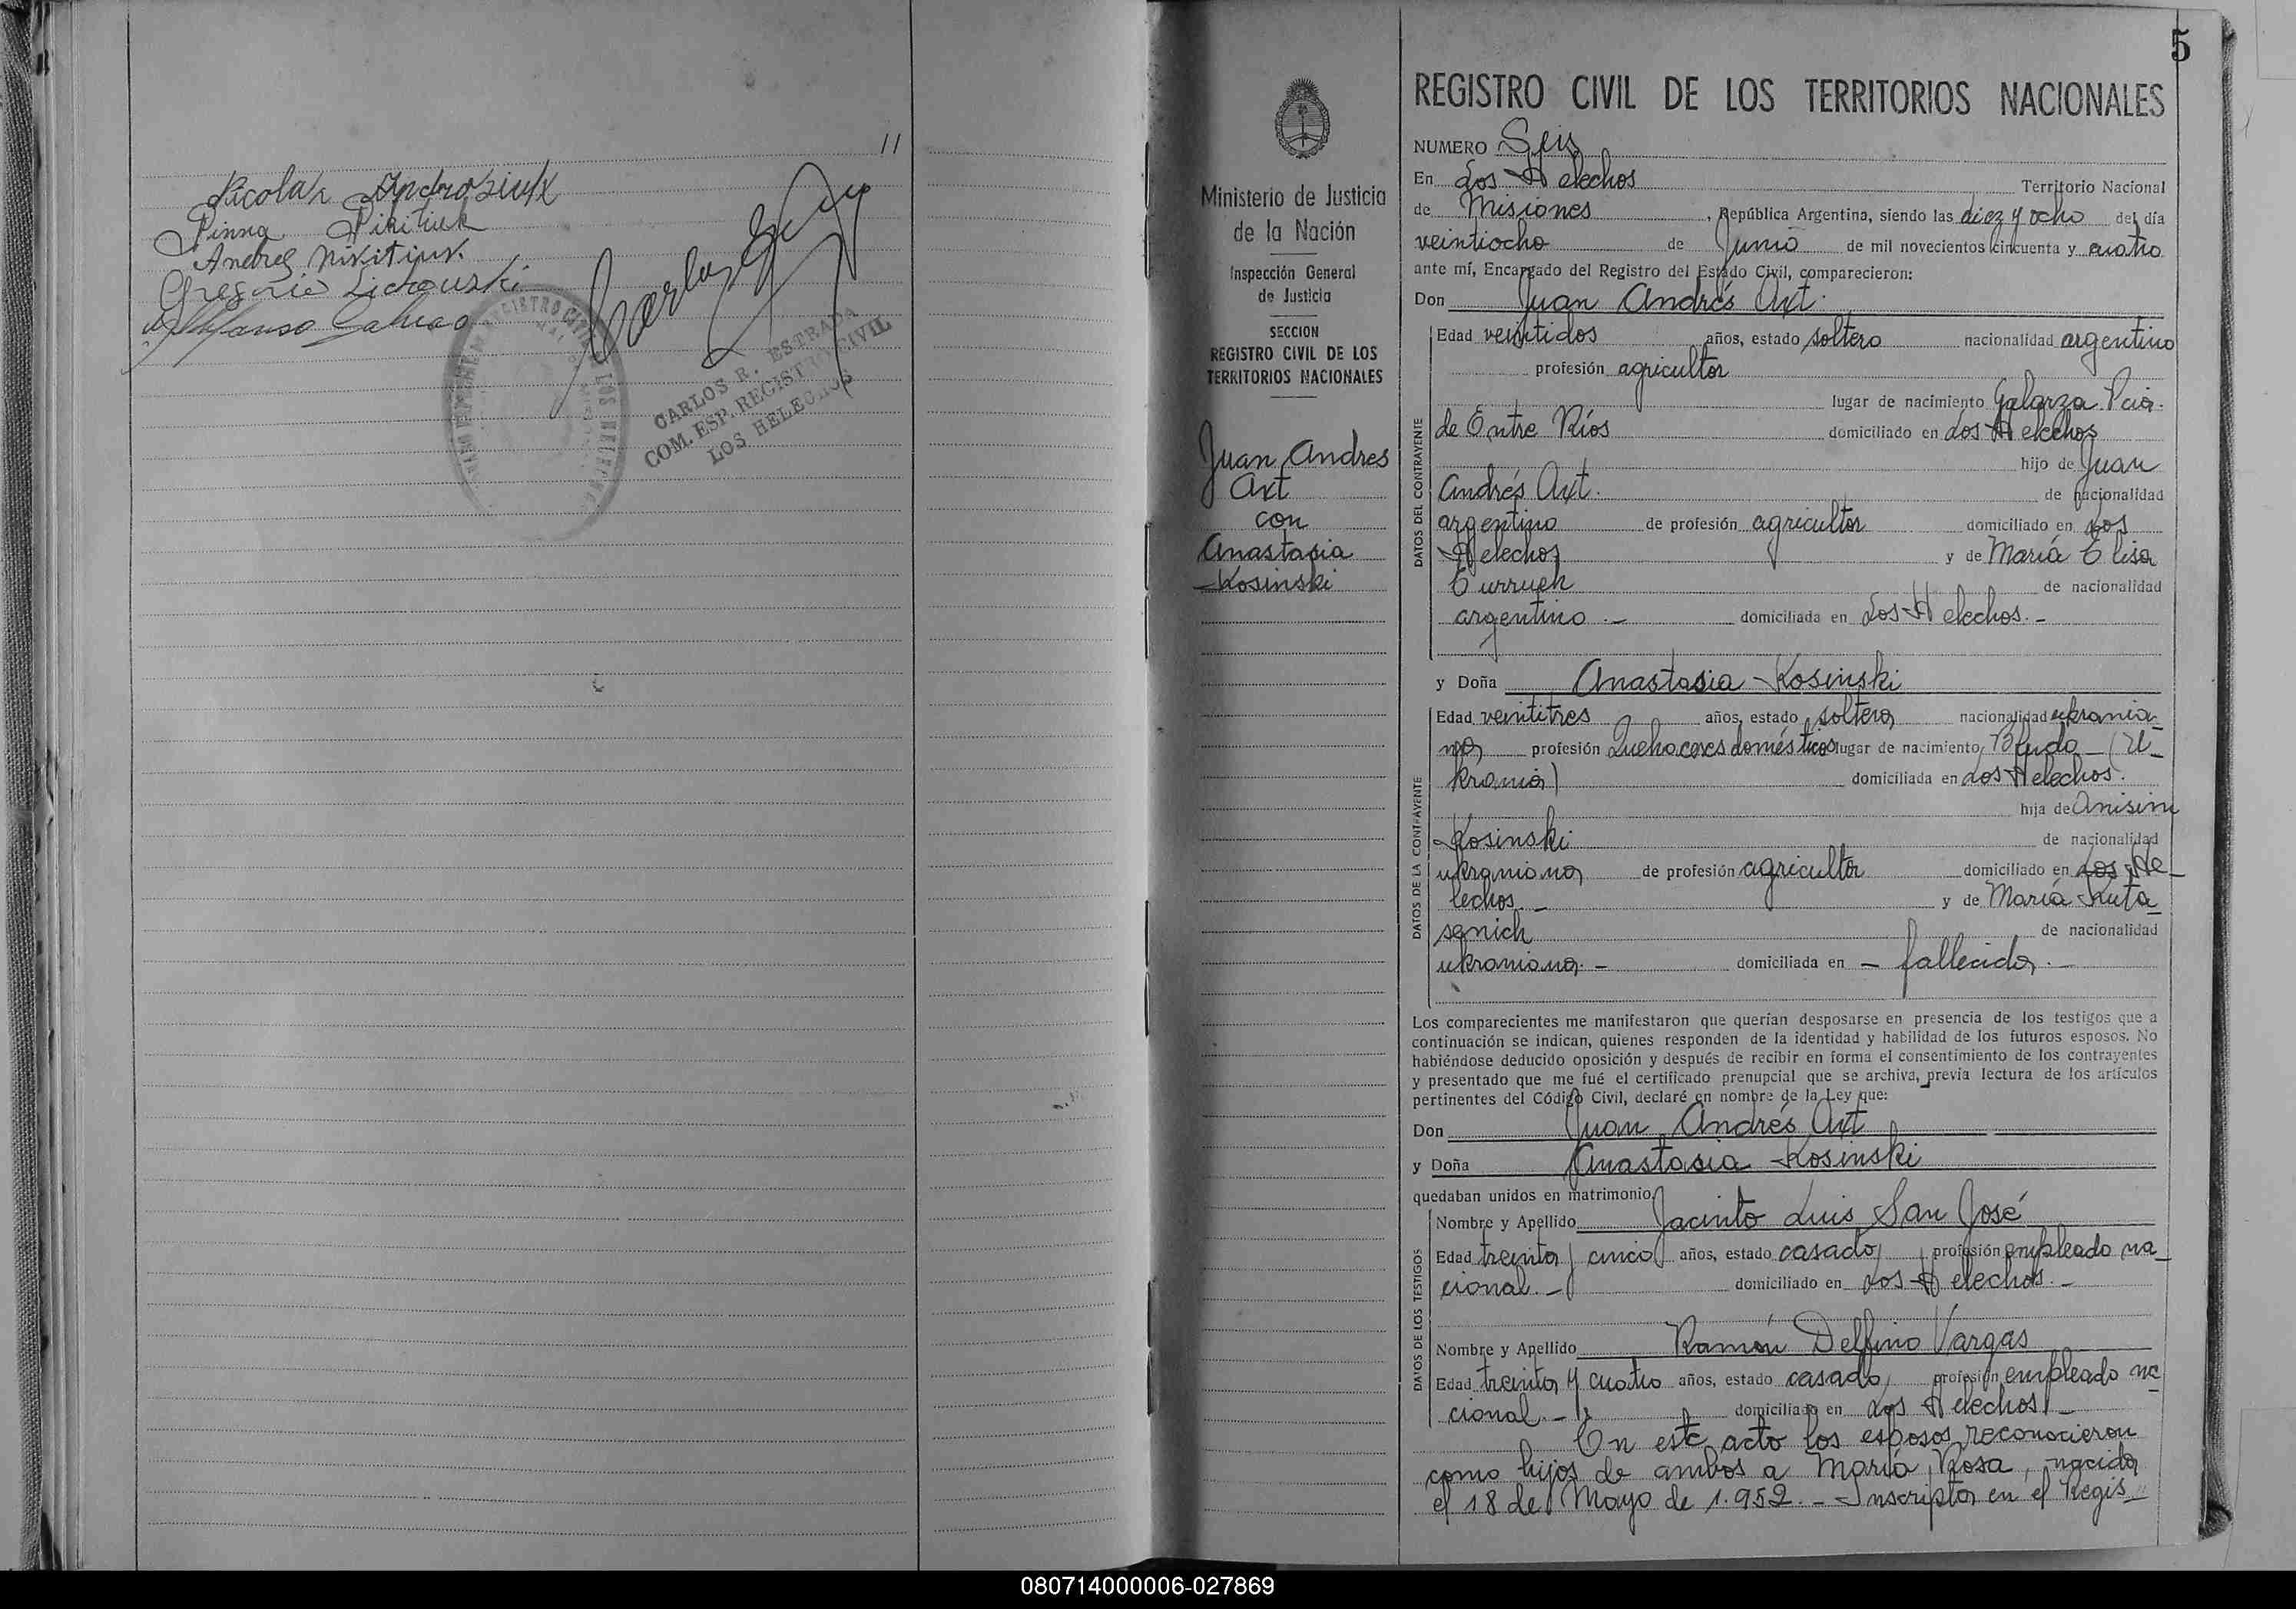 11
Nicolas Androsiuk
Pinna Nikitiuk
Andres Nikitiuk.
Gregorio Lichouski
Alfonso Galeao
CARLOS R. ESTRADA
COM. ESP. REGISTRO CIVIL
LOS HELECHOS
Ministerio de Justicia
de la Nación
Inspección General
de Justicia
SECCION
REGISTRO CIVIL DE LOS
TERRITORIOS NACIONALES
Juan Andres
Axt
con
Anastasia
Kosinski
5
REGISTRO CIVIL DE LOS TERRITORIOS NACIONALES
NUMERO Seis
En Los Helechos Territorio Nacional
de Misiones, República Argentina, siendo las diez y ocho del día
veintiocho de Junio de mil novecientos cincuenta y cuatro
ante mí, Encargado del Registro del Estado Civil, comparecieron:
Don Juan Andrés Axt.
DATOS DEL CONTRAYENTE
Edad veintidos años, estado soltero nacionalidad argentino
profesión agricultor
lugar de nacimiento Galarza Pcia.
de Entre Ríos domiciliado en Los Helechos
hijo de Juan
Andrés Axt. de nacionalidad
argentino de profesión agricultor domiciliado en Los
Helechos y de María Elisa
Eurrueh de nacionalidad
argentina .- domiciliada en Los Helechos.-
y Doña Anastasia Kosinski
DATOS DE LA CONTRAYENTE
Edad veintitres años, estado soltera nacionalidad ukrania-
na profesión Quehaceres domésticos lugar de nacimiento Bludo (U-
krania) domiciliada en Los Helechos.
hija de Anisim
Kosinski de nacionalidad
ukraniana de profesión agricultor domiciliado en Los He-
lechos.- y de María Kuta-
senich de nacionalidad
ukraniana.- domiciliada en - fallecida.-
Los comparecientes me manifestaron que querían desposarse en presencia de los testigos que a
continuación se indican, quienes responden de la identidad y habilidad de los futuros esposos. No
habiéndose deducido oposición y después de recibir en forma el consentimiento de los contrayentes
y presentado que me fué el certificado prenupcial que se archiva, previa lectura de los artículos
pertinentes del Código Civil, declaré en nombre de la Ley que:
Don Juan Andrés Axt
y Doña Anastasia Kosinski
quedaban unidos en matrimonio.
DATOS DE LOS TESTIGOS
Nombre y Apellido Jacinto Luis San José
Edad treinta y cinco años, estado casado, profesión empleado na-
cional.- domiciliado en Los Helechos.-
Nombre y Apellido Ramón Delfino Vargas
Edad treinta y cuatro años, estado casado, profesión empleado na-
cional.- domiciliado en Los Helechos.-
En este acto los esposos reconocieron
como hijos de ambos a María Rosa, nacida
el 18 de Mayo de 1.952.- Inscripta en el Regis-
080714000006-027869